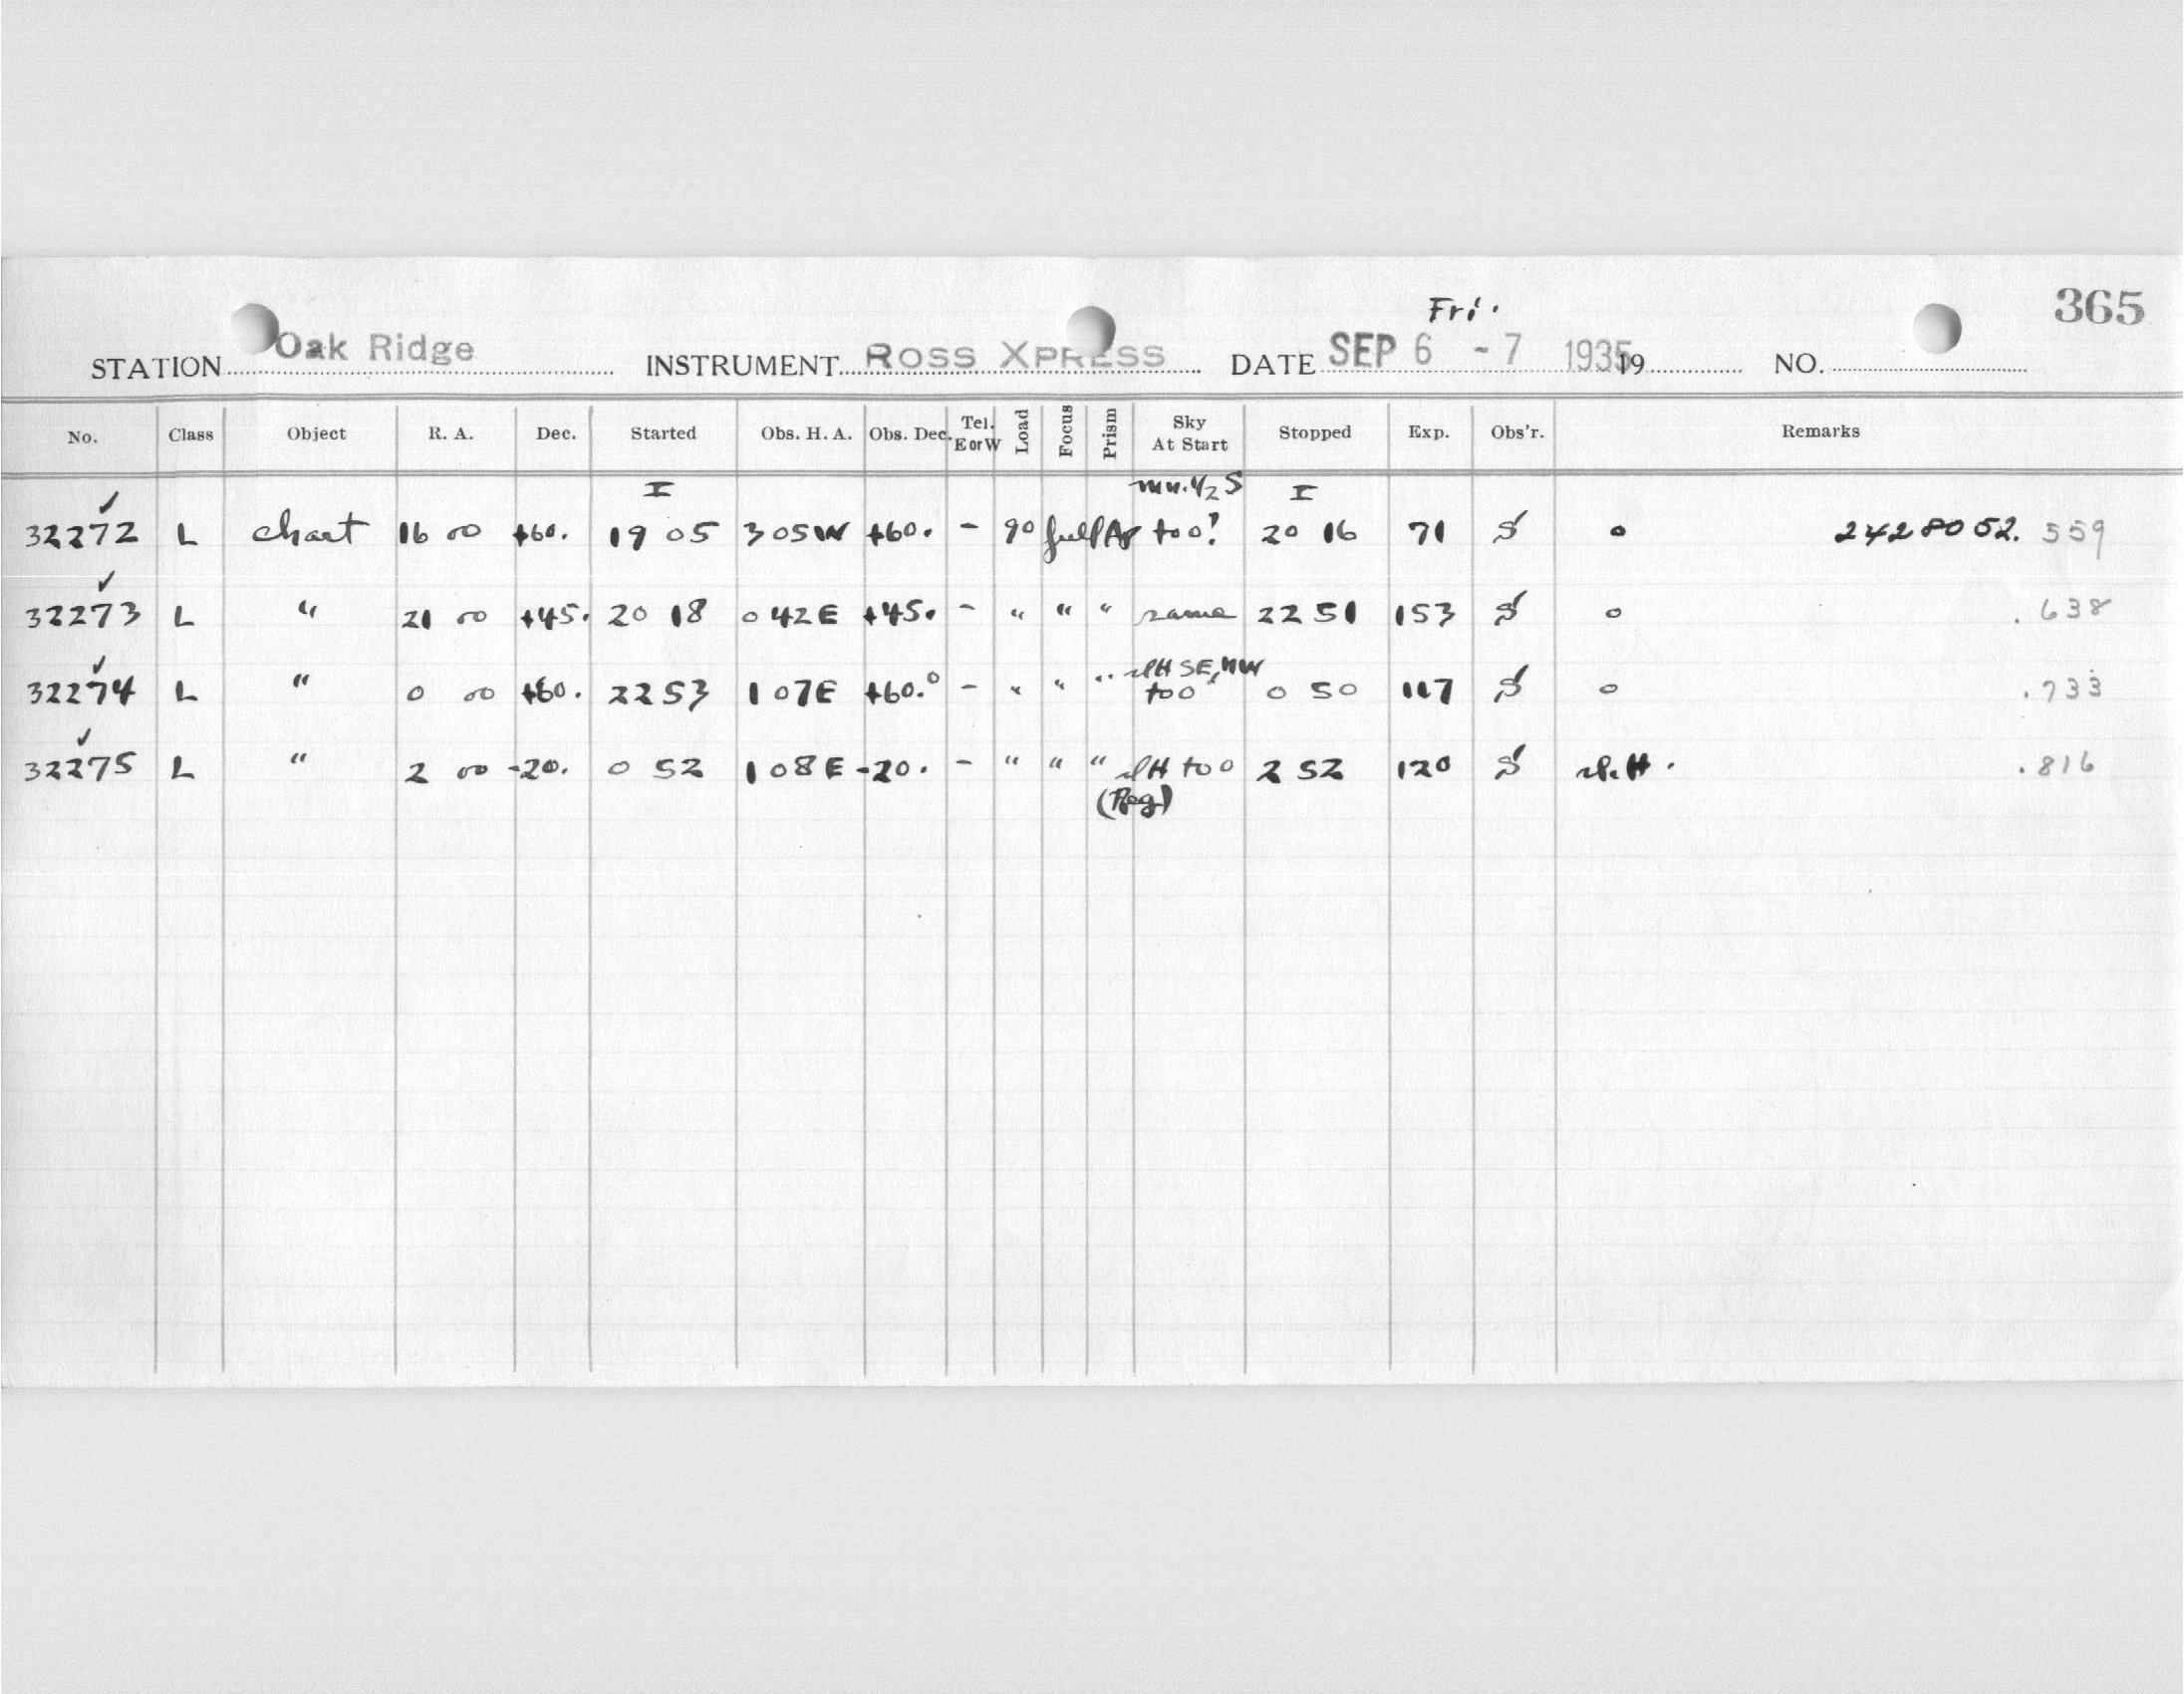 365
Fri.
STATION Oak Ridge INSTRUMENT ROSS XPRESS DATE SEP 6 - 7 1935 19 NO.
No. Class Object R. A. Dec. Started Obs. H. A. Obs. Dec. Tel. E or W Load Focus Prism Sky At Start Stopped Exp. Obs'r. Remarks
I mn. 1/2 S I
32272 L chart 16 00 +60. 19 05 3 05W +60. - 90 full Ap too! 20 16 71 S 0 2428052. 559
32273 L " 21 00 +45. 20 18 0 42E +45. - " " " same 22 51 153 S 0 .638
SE, NW
32274 L " 0 00 +60. 22 53 1 07E +60.° - " " " too 0 50 117 S 0 .733
32275 L " 2 00 -20. 0 52 1 08E -20. - " " " too 2 52 120 S .816